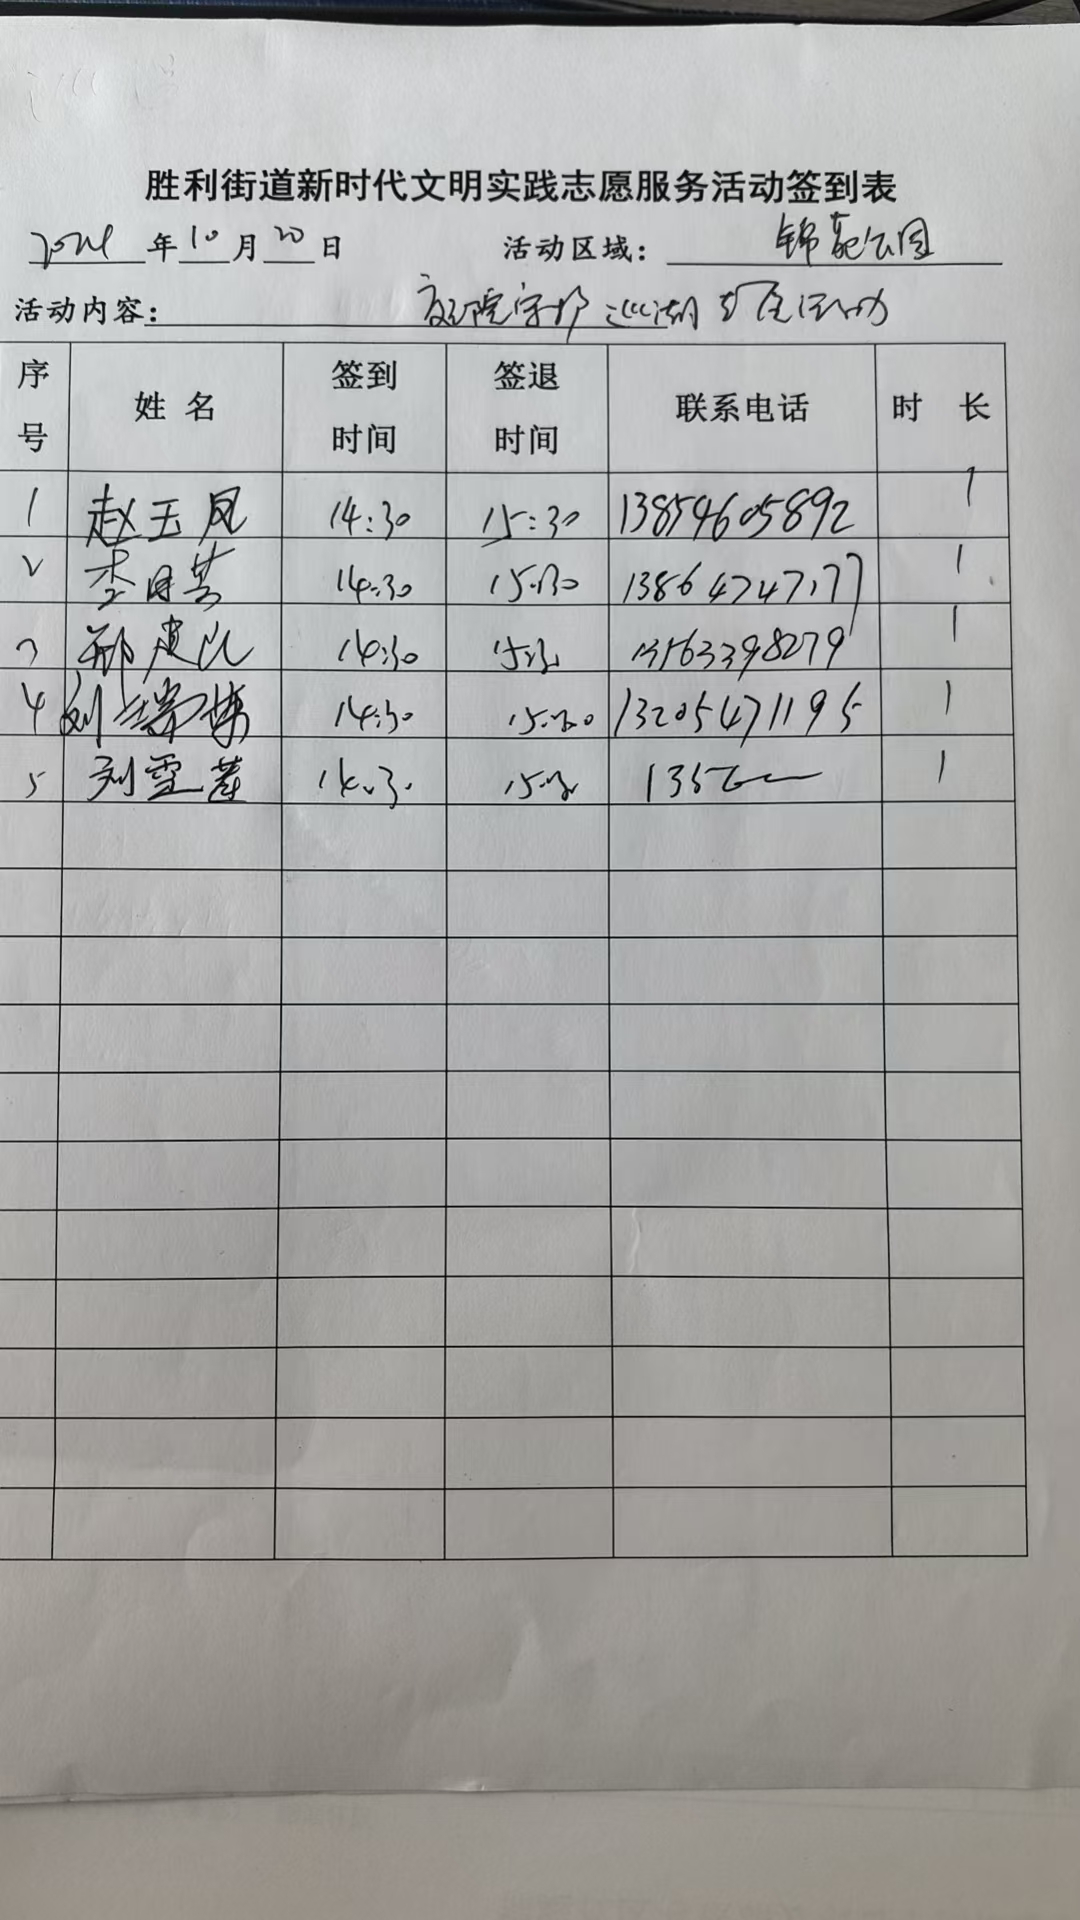 胜利街道新时代文明实践志愿服务活动签到表
2024年10月20日 活动区域：锦苑公园
活动内容：巡湖志愿活动
序号 姓名 签到时间 签退时间 联系电话 时长
1 赵玉凤 14:30 15:30 13854605892 1
2 李日芸 14:30 15:30 13864747177 1
3 郑 14:30 15:30 13163398279 1
4 刘 14:30 15:30 13205471195 1
5 刘雪莲 14:30 15:30 135 1